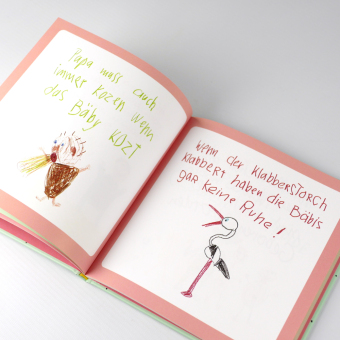 Papa muss auch
immer kozen wenn
das Bäby KOZT
Wenn der KlabberSTORCH
KlabberT haben die Bäbis
gar keine Ruhe!